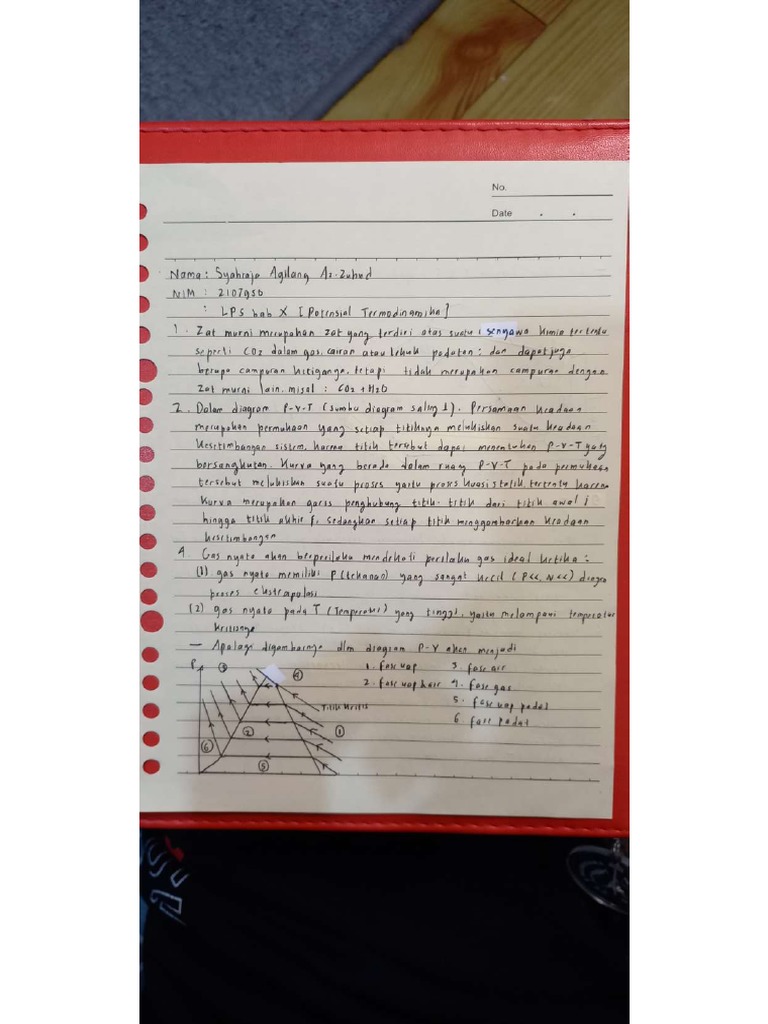 No.
Date . .
Nama : Syahraja Agilang Az-Zuhud
NIM : 2107950
: LPS bab X [Potensial Termodinamika]
1. Zat murni merupakan zat yang terdiri atas suatu senyawa kimia tertentu
seperti CO2 dalam gas, cairan atau padatan; dan dapat juga
berupa campuran ketiganya, tetapi tidak merupakan campuran dengan
zat murni lain. misal : CO2 + H2O
2. Dalam diagram P-V-T (sumbu diagram saling ⊥). Persamaan keadaan
merupakan permukaan yang setiap titiknya melukiskan suatu keadaan
kesetimbangan sistem, karena titik tersebut dapat menentukan P-V-T yang
bersangkutan. Kurva yang berada dalam ruang P-V-T pada permukaan
tersebut melukiskan suatu proses yaitu proses kuasistatik tertentu karena
kurva merupakan garis penghubung titik-titik dari titik awal i
hingga titik akhir f, sedangkan setiap titik menggambarkan keadaan
kesetimbangan
4. Gas nyata akan berperilaku mendekati perilaku gas ideal ketika :
(1) gas nyata memiliki P (tekanan) yang sangat kecil (P<<, N<<) dengan
proses ekstrapolasi
(2) gas nyata pada T (Temperatur) yang tinggi, yaitu melampaui temperatur
kritisnya
— Apalagi digambarnya dlm diagram P-V akan menjadi
P
1. fase uap 3. fase air
2. fase uap & air 4. fase gas
5. fase uap padat
6. fase padat
Titik kritis
3
4
2
1
6
5